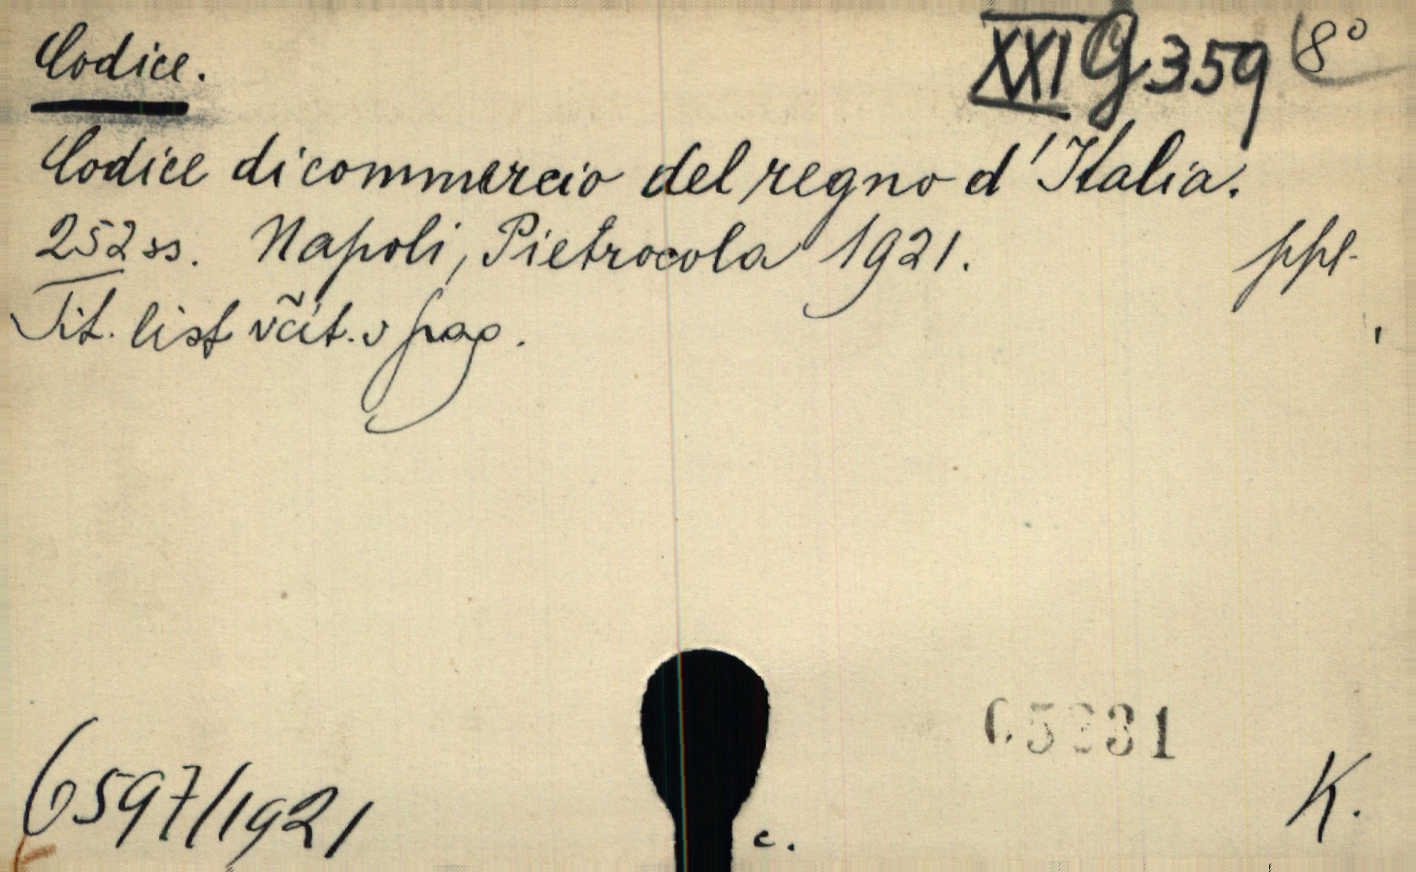 Codice. XXI G 359 8°
Codice di commercio del regno d'Italia.
252 ss. Napoli, Pietrocola 1921. ppl.
Tit. list včít. v pag.
6597/1921
c.
K.